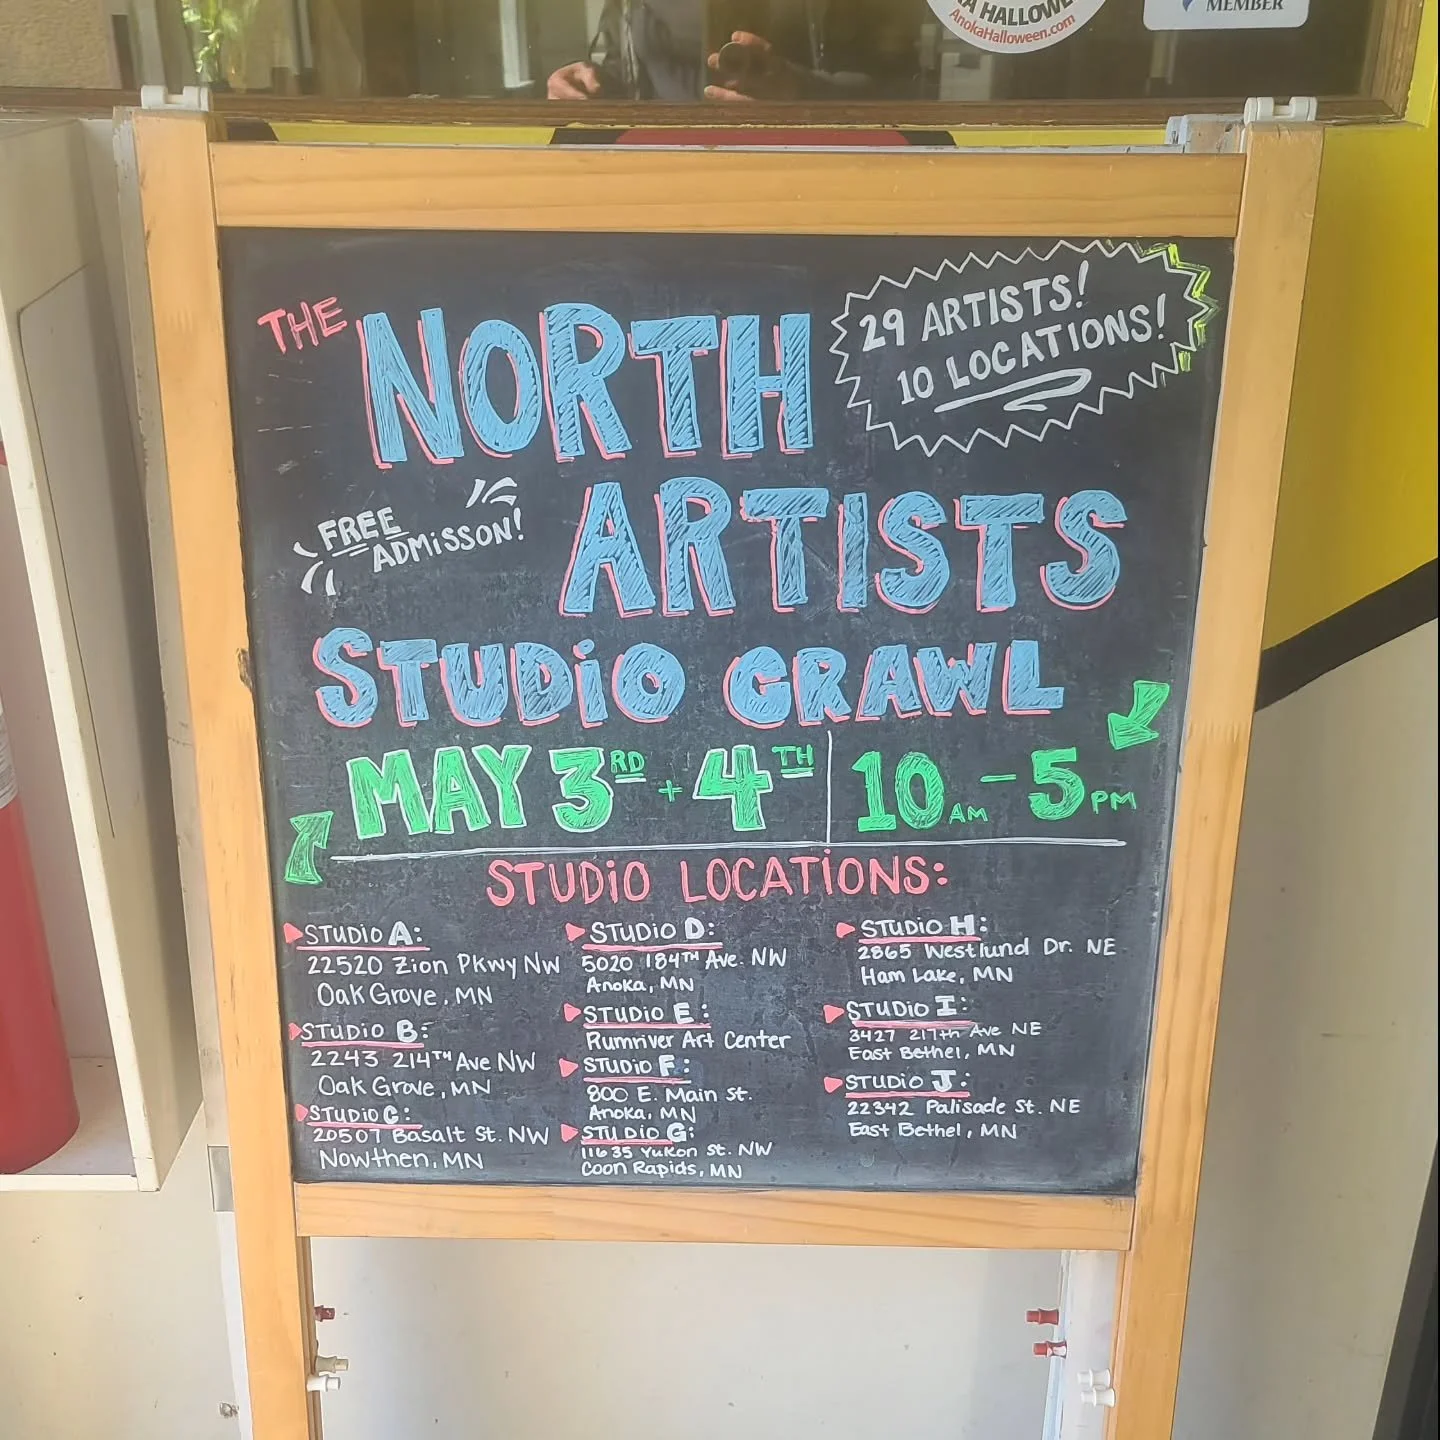 KA HALLOWE
AnokaHalloween.com
MEMBER
THE NORTH
29 ARTISTS!
10 LOCATIONS!
FREE
ADMISSON!
ARTISTS
STUDIO CRAWL
MAY 3RD + 4TH | 10AM - 5PM
STUDIO LOCATIONS:
STUDIO A:
22520 Zion Pkwy NW
Oak Grove, MN
STUDIO B:
2243 214TH Ave NW
Oak Grove, MN
STUDIO C:
20507 Basalt St. NW
Nowthen, MN
STUDIO D:
5020 184TH Ave. NW
Anoka, MN
STUDIO E:
Rumriver Art Center
STUDIO F:
800 E. Main St.
Anoka, MN
STUDIO G:
11635 Yukon St. NW
Coon Rapids, MN
STUDIO H:
2865 Westlund Dr. NE
Ham Lake, MN
STUDIO I:
3427 217th Ave NE
East Bethel, MN
STUDIO J:
22342 Palisade St. NE
East Bethel, MN